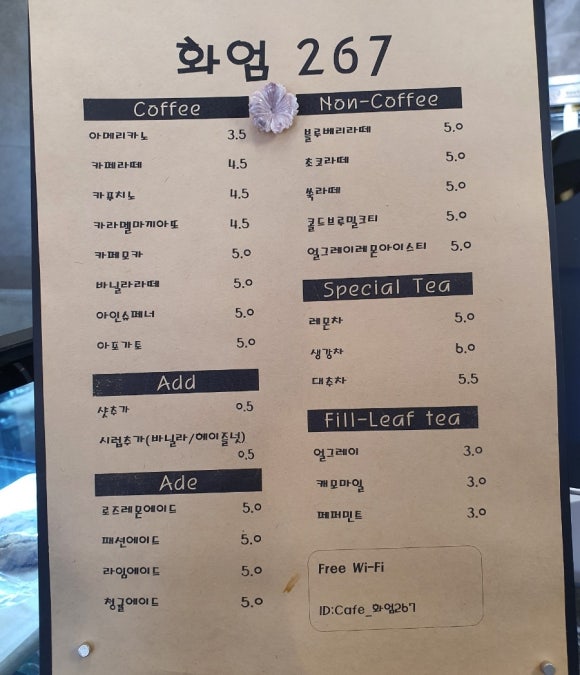 화엄 267
Coffee
아메리카노 3.5
카페라떼 4.5
카푸치노 4.5
카라멜마끼아또 4.5
카페모카 5.0
바닐라라떼 5.0
아인슈페너 5.0
아포가토 5.0
Add
샷추가 0.5
시럽추가(바닐라/헤이즐넛)
0.5
Ade
로즈레몬에이드 5.0
패션에이드 5.0
라임에이드 5.0
청귤에이드 5.0
Non-Coffee
블루베리라떼 5.0
초코라떼 5.0
쑥라떼 5.0
콜드브루밀크티 5.0
얼그레이레몬아이스티 5.0
Special Tea
레몬차 5.0
생강차 6.0
대추차 5.5
Fill-Leaf tea
얼그레이 3.0
캐모마일 3.0
페퍼민트 3.0
Free Wi-Fi
ID:Cafe_화엄267